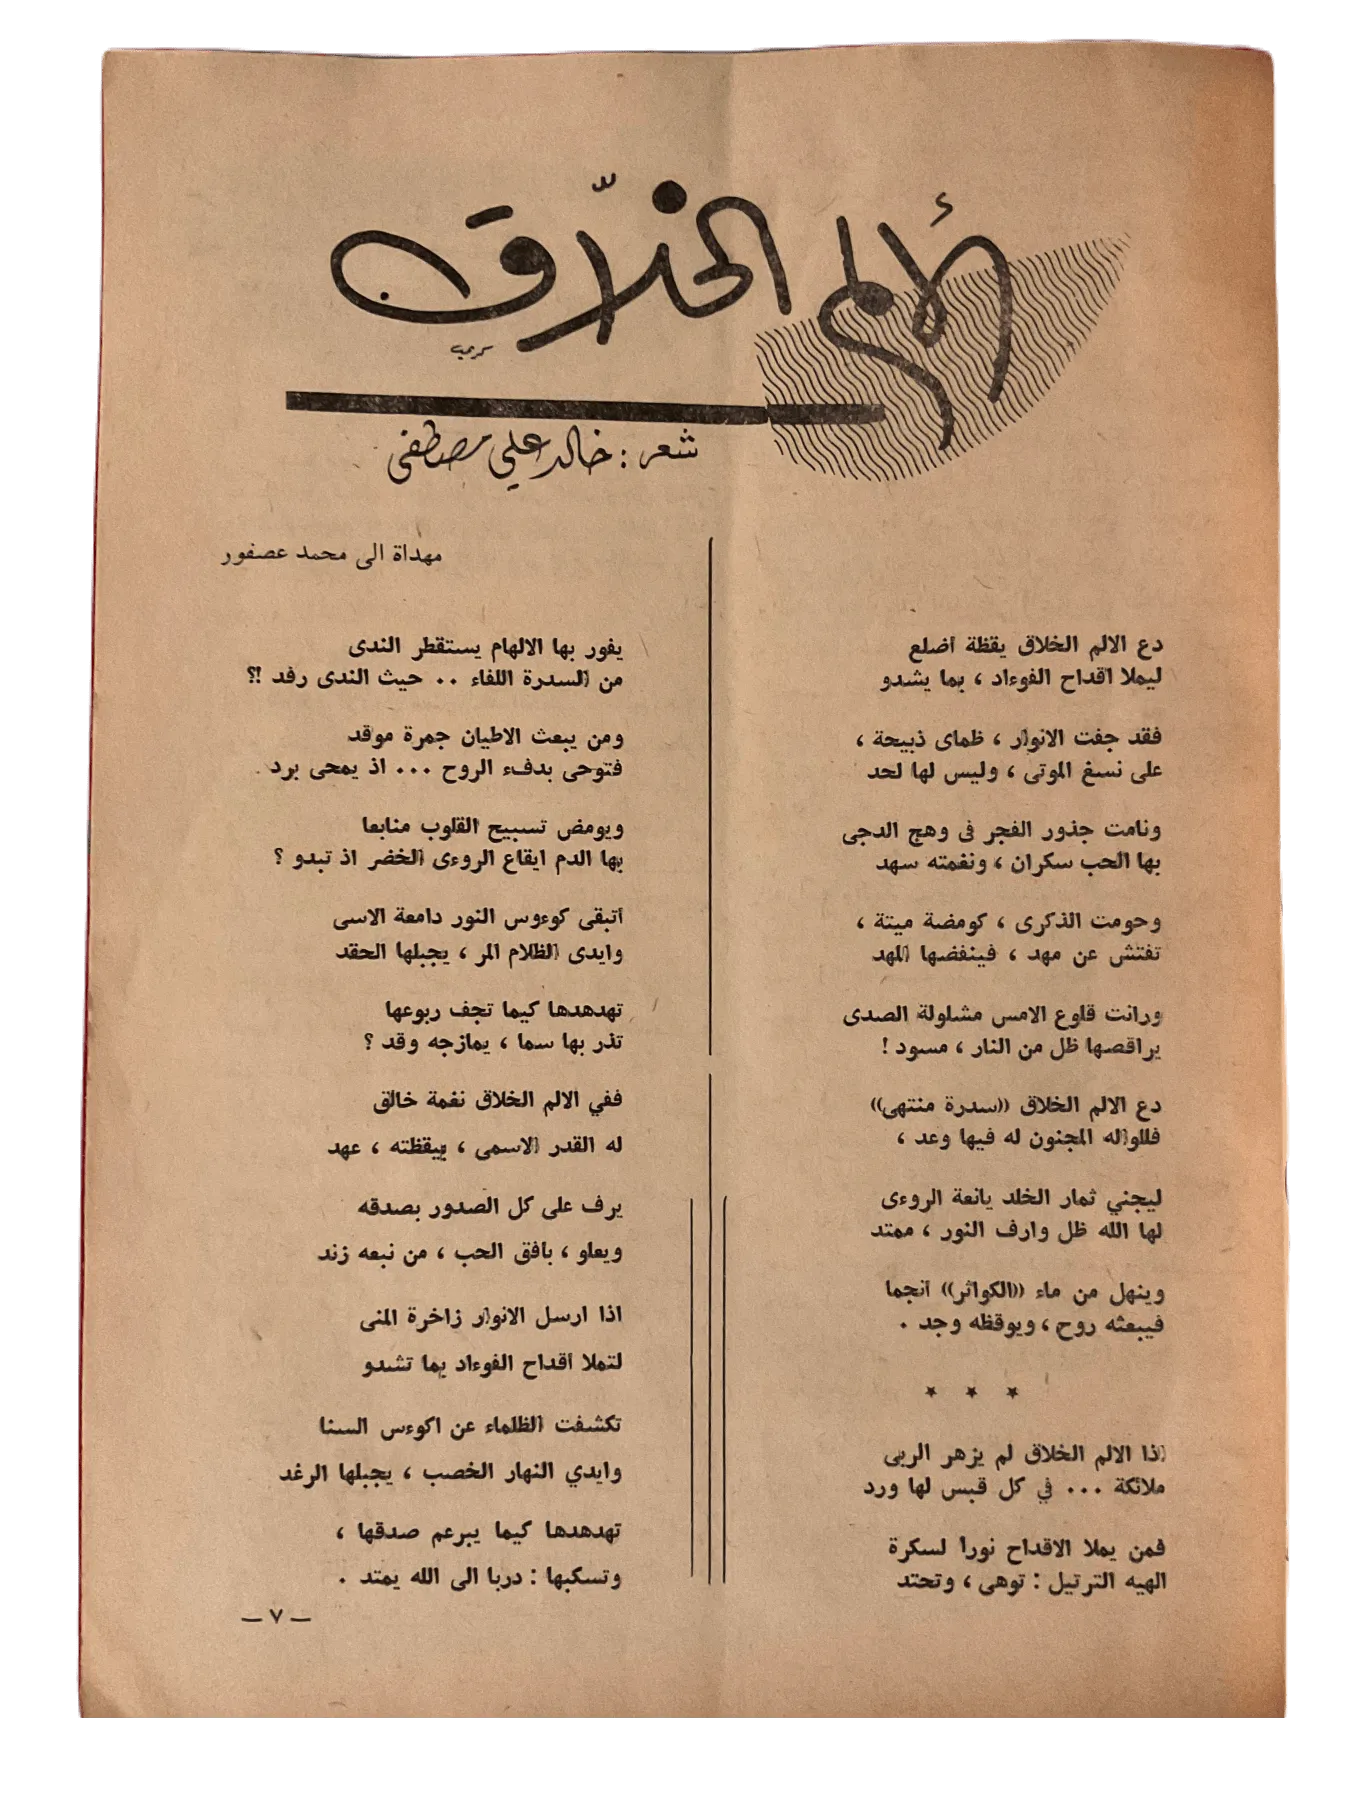 ألم الخلّاق
كريم
شعر : خالد علي مصطفى
مهداة الى محمد عصفور
دع الالم الخلاق يقظة أضلع
ليملا اقداح الفوءاد ، بما يشدو
فقد جفت الانوار ، ظماى ذبيحة ،
على نسغ الموتى ، وليس لها لحد
ونامت جذور الفجر فى وهج الدجى
بها الحب سكران ، ونغمته سهد
وحومت الذكرى ، كومضة ميتة ،
تفتش عن مهد ، فينفضها المهد
ورانت قلوع الامس مشلولة الصدى
يراقصها ظل من النار ، مسود !
دع الالم الخلاق ((سدرة منتهى))
فللواله المجنون له فيها وعد ،
ليجني ثمار الخلد يانعة الروءى
لها الله ظل وارف النور ، ممتد
وينهل من ماء ((الكواثر)) أنجما
فيبعثه روح ، ويوقظه وجد .
* * *
اذا الالم الخلاق لم يزهر الربى
ملائكة ... في كل قبس لها ورد
فمن يملا الاقداح نورا لسكرة
الهيه الترتيل : توهى ، وتحتد
يفور بها الالهام يستقطر الندى
من السدرة اللفاء .. حيث الندى رفد !؟
ومن يبعث الاطيان جمرة موقد
فتوحى بدفء الروح ... اذ يمحى برد .
ويومض تسبيح القلوب منابعا
بها الدم ايقاع الروءى الخضر اذ تبدو ؟
أتبقى كوءوس النور دامعة الاسى
وايدى الظلام المر ، يجبلها الحقد
تهدهدها كيما تجف ربوعها
تذر بها سما ، يمازجه وقد ؟
ففي الالم الخلاق نغمة خالق
له القدر الاسمى ، بيقظته ، عهد
يرف على كل الصدور بصدقه
ويعلو ، بافق الحب ، من نبعه زند
اذا ارسل الانوار زاخرة المنى
لتملا أقداح الفوءاد بما تشدو
تكشفت الظلماء عن اكوءس السنا
وايدي النهار الخصب ، يجبلها الرغد
تهدهدها كيما يبرعم صدقها ،
وتسكبها : دربا الى الله يمتد .
— ٧ —